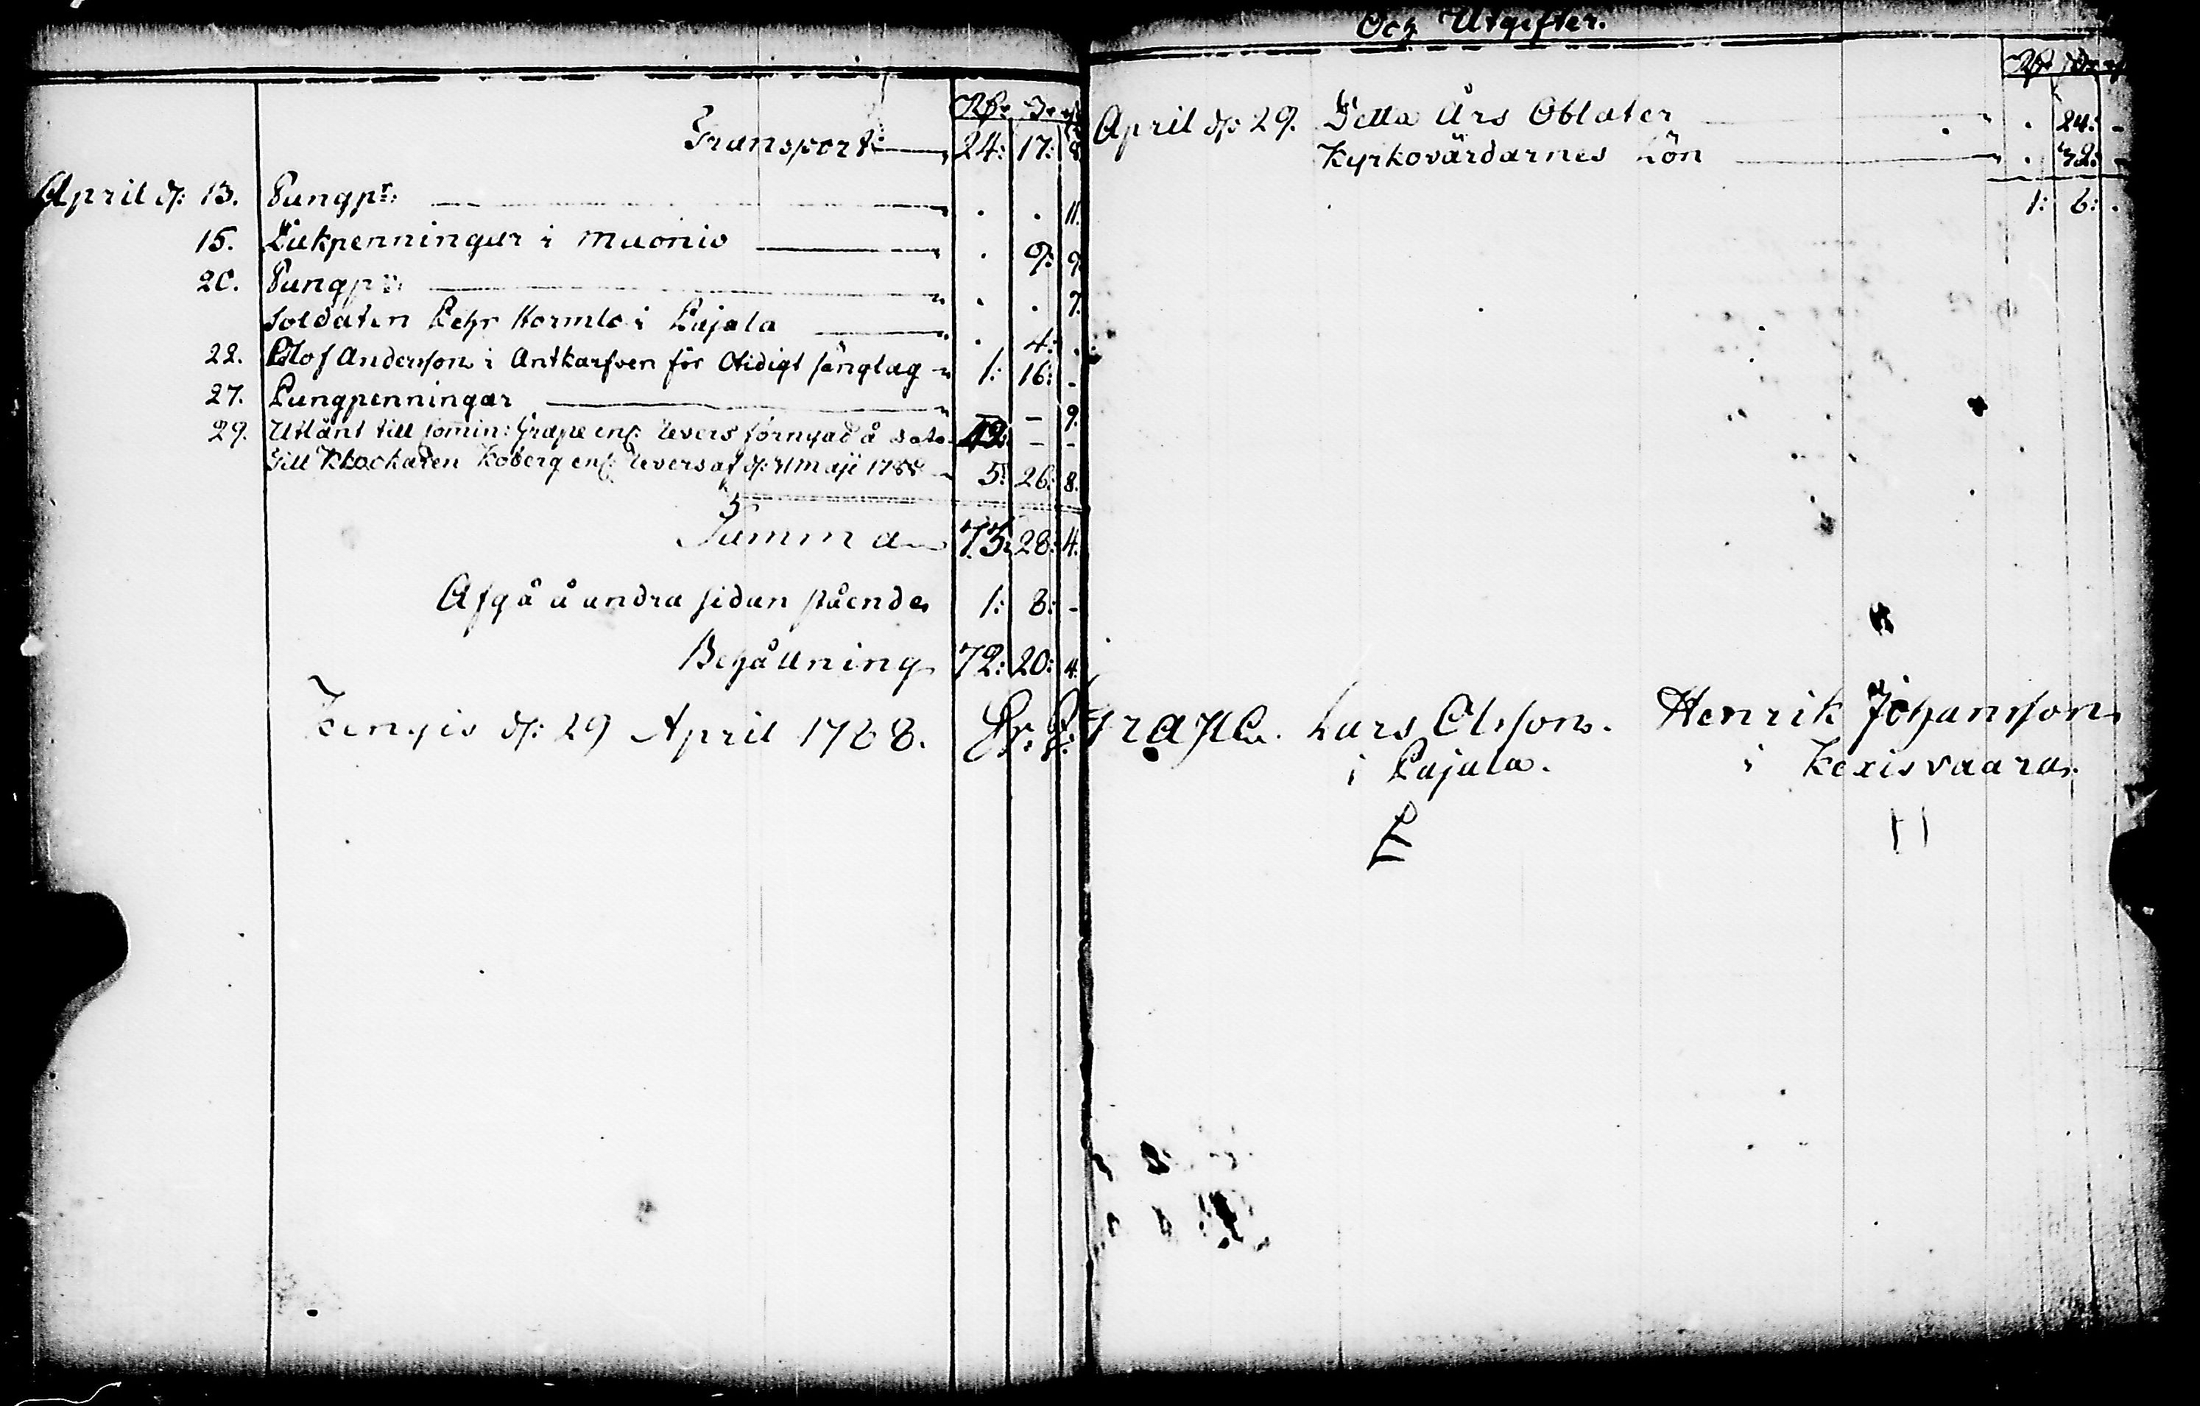 Transport: 24: 17: 8.
April d: 13. Pungpr: . . 11.
15. Likpenningar i Muonio . 9: 9.
20. Pungpr: . . 7.
Soldaten Pehr i Pajala . 4: .
22. Olof Andersson i för Otidigt sänglag 1: 16: -
27. Pungpenningar - - 9.
29. Utlånt till Comin: Grape enl: Revers förnyad å dato 42: - -
Till Klockaren Koberg enl: Revers af d: Maji 5: 26: 8.
Summa 73: 28: 4.
Afgå å andra sidan stående 1: 8: -
Behållning 72: 20: 4.
Kengis d: 29 April 1788.
Och Utgifter.
April d: 29. Detta Års Oblater . 24: -
Kyrkovärdarnes Lön . 32: -
1: 8: .
Grape. Lars Olsson. Henrik Johansson
i Pajala. i Kexisvaara.